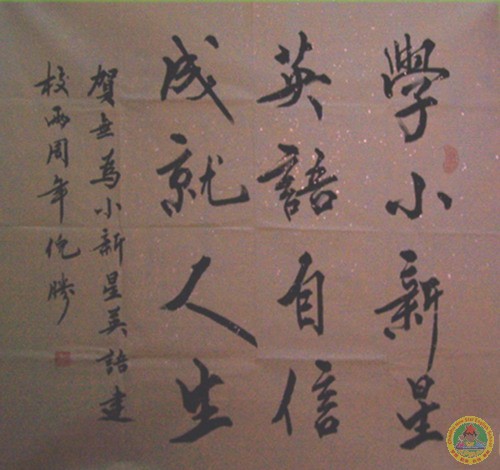 學小新星
英語自信
成就人生
賀無為小新星英語建
校兩周年 倪勝